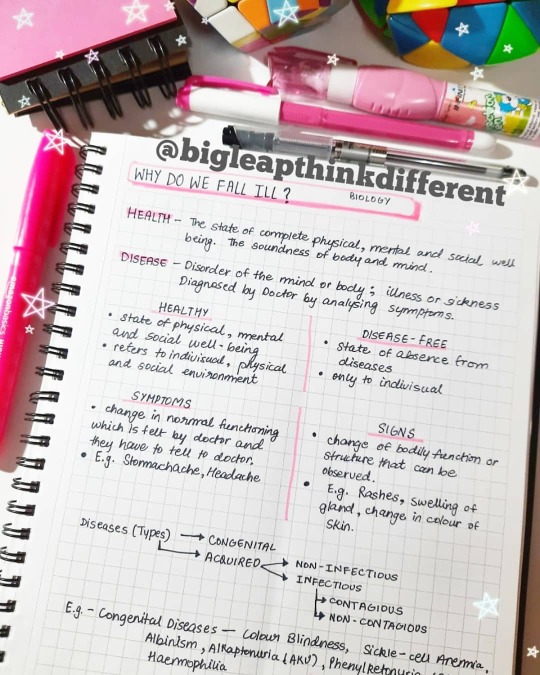 @bigleapthinkdifferent
WHY DO WE FALL ILL?
BIOLOGY
HEALTH - The state of complete physical, mental and social well
being. The soundness of body and mind.
DISEASE - Disorder of the mind or body; illness or sickness
Diagnosed by Doctor by analysing symptoms.
HEALTHY
• state of physical, mental
and social well-being
• refers to indivisual, physical
and social environment
DISEASE-FREE
• state of absence from
diseases
• only to indivisual
SYMPTOMS
• change in normal functioning
which is felt by doctor and
they have to tell to doctor.
• E.g. Stomachache, Headache
SIGNS
• change of bodily function or
structure that can be
observed.
• E.g. Rashes, swelling of
gland, change in colour of
skin.
Diseases (Types) → CONGENITAL
→ ACQUIRED → NON-INFECTIOUS
→ INFECTIOUS
→ CONTAGIOUS
→ NON-CONTAGIOUS
E.g. - Congenital Diseases - Colour Blindness, Sickle-cell Anemia,
Albinism, Alkaptonuria (AKU), Phenylketonuria
Haemophilia